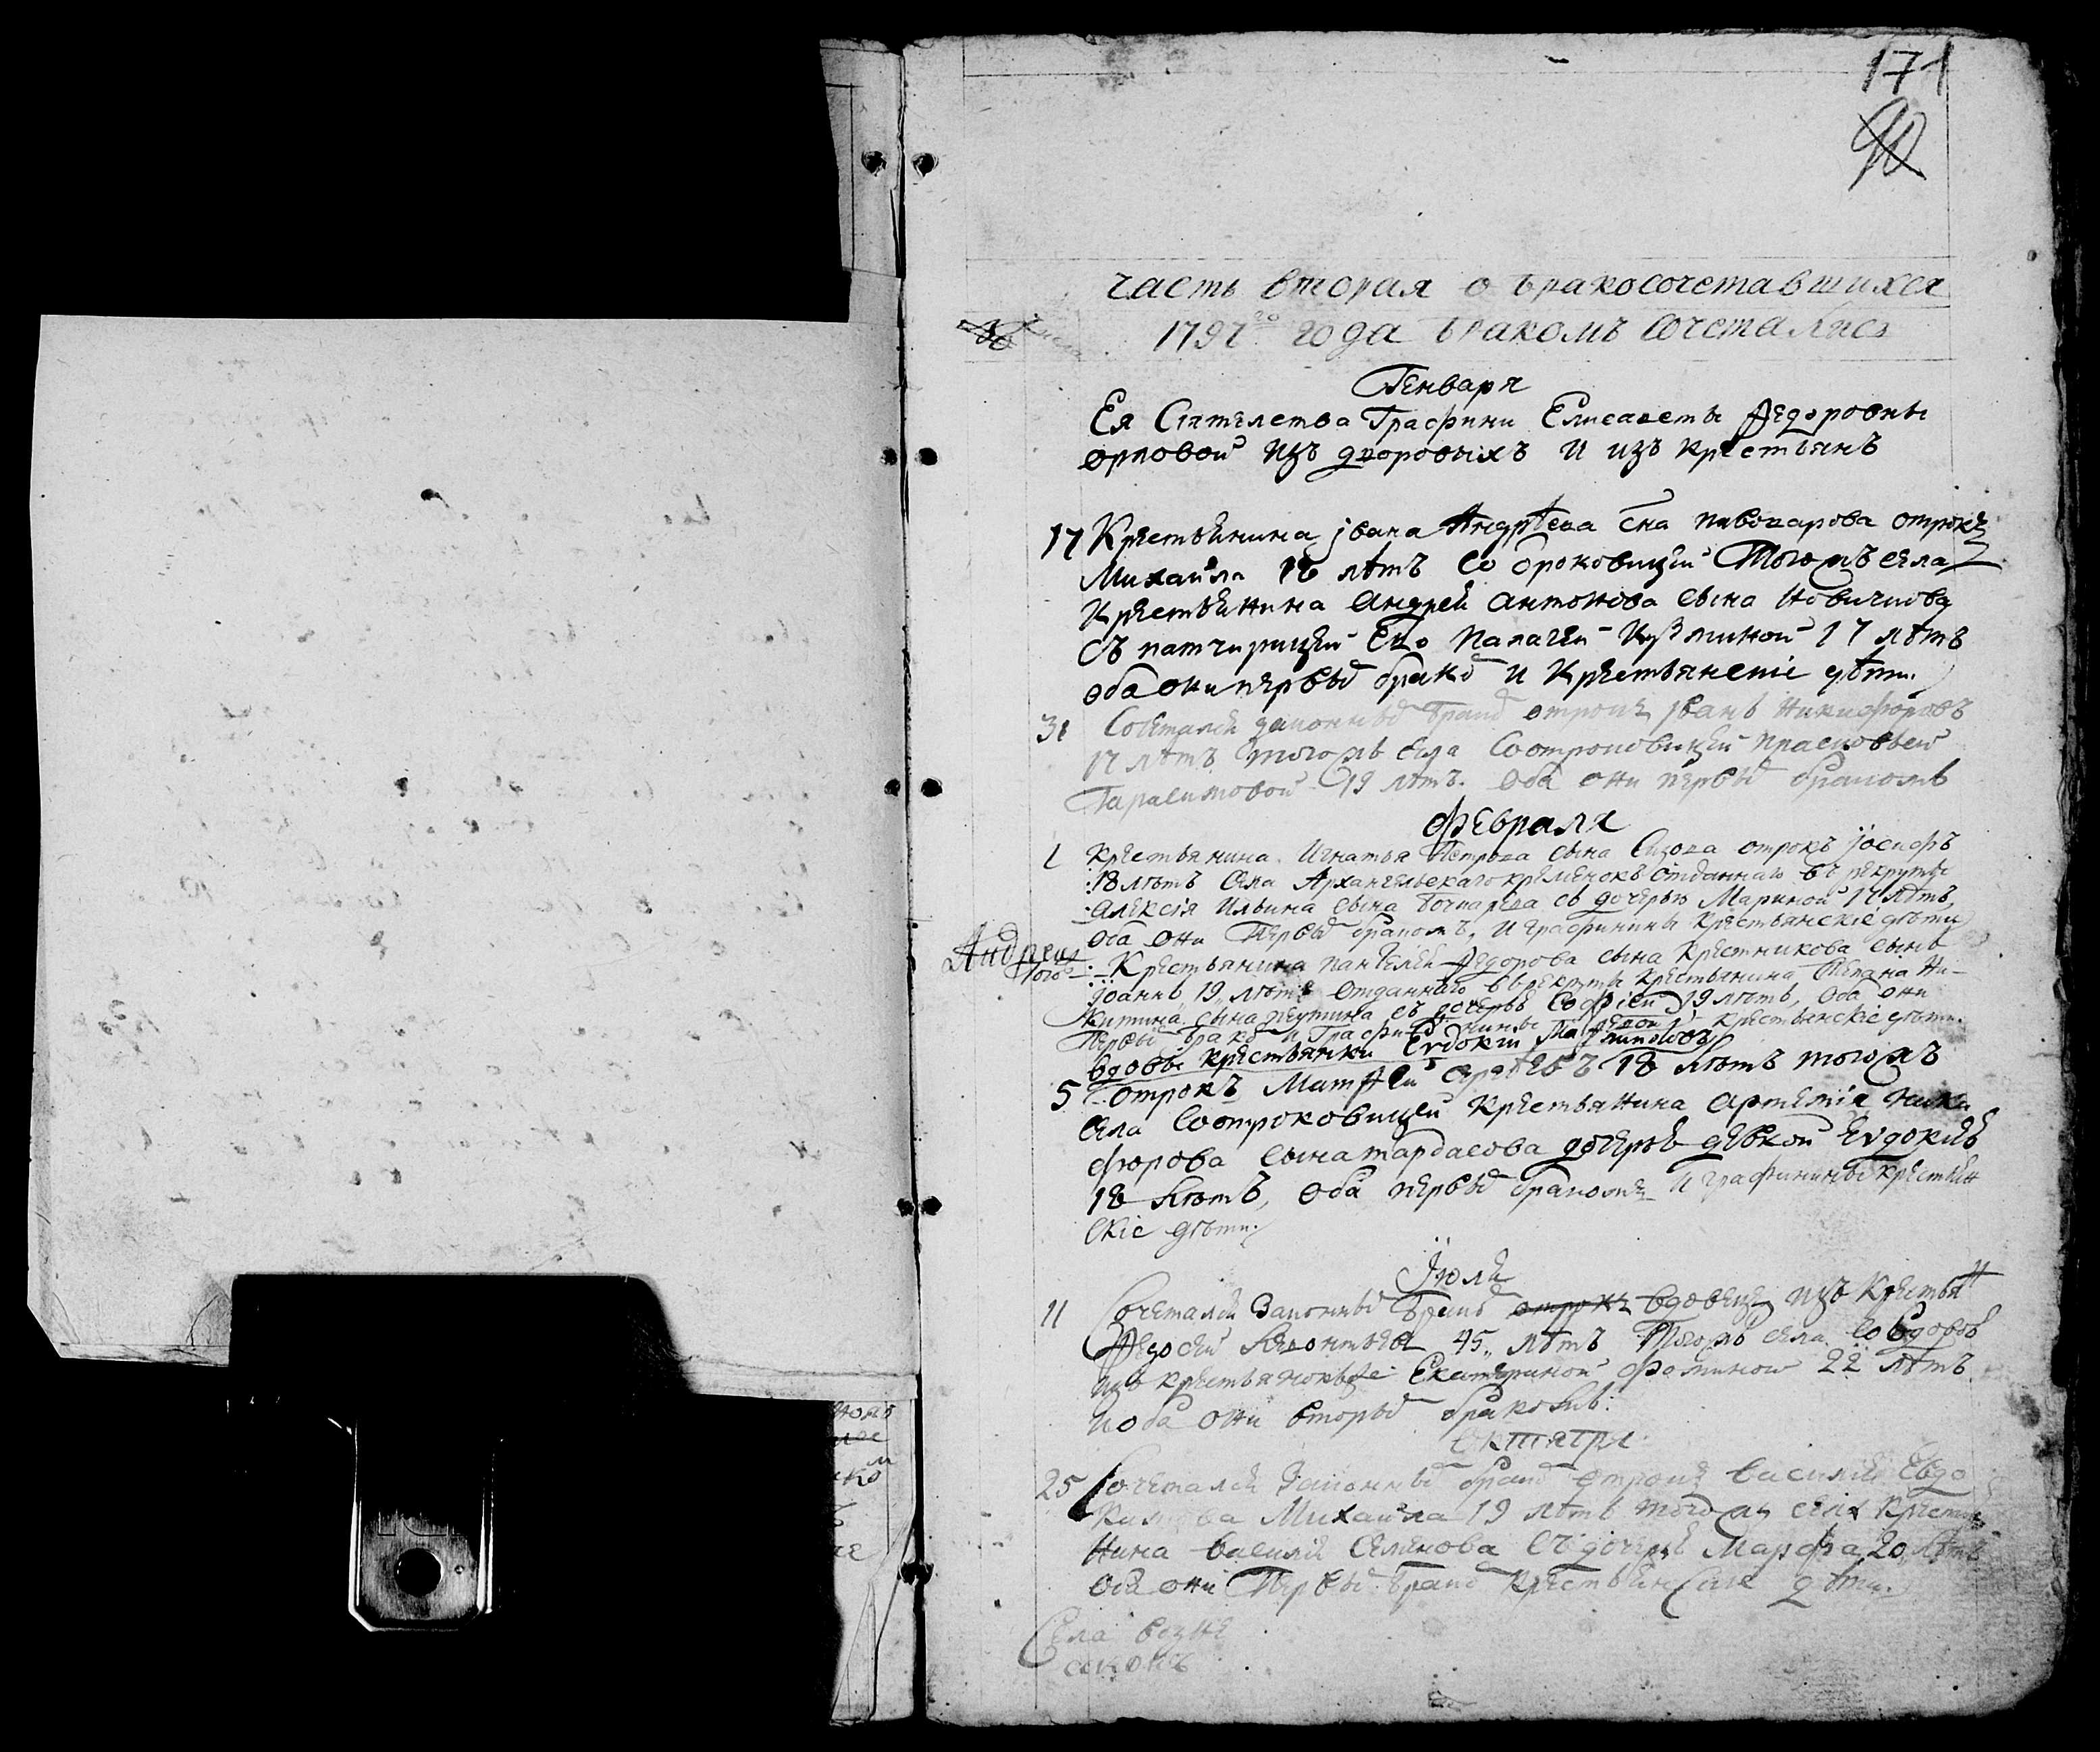 171
90
часть вторая о бракосочетавшихся
1797го года бракомъ сочетались
Генваря
Ея Сиятелства Графини Елисаветы Федоровны
орловой изъ дворовыхъ и изъ крестьянъ
17 Крестьянина jвана Андрѣева сна пивоварова отрокъ
Михаила 18 лѣтъ со отроковицей Тогожъ села
Крестьянина Андрея антонова сына Новичкова
съ патчирицей Его Палагей Кузминой 17 лѣтъ
оба они первы бракъ и Крестьянские дѣти.
31 Сочетался законны бракъ отрокъ jванъ Никифоровъ
17 лѣтъ тогожъ села Соотроковицей прасковьей
Гарасимовой 19 лѣтъ. Оба они первы бракомъ
февраля
1 Крестьянина Игнатья Петрова сына отрокъ jосифъ
18 лѣтъ села Архангельскаго кременокъ отданнаго въ рекруты
Алексiя Ильина сына Бочкарева съ дочерью Мариной 17 лѣтъ,
Оба они первы бракомъ, и графинины крестьянскiе дѣти
Андреи
Крестьянина пантелея Федорова сына Крестникова сынъ
jоаннъ 19 лѣтъ отданнаго в рекруты крестьянина Степана Ни-
китина сына съ дочерью Софiей 19 лѣтъ, Оба они
первы бракъ и Графинины крестьянскiе дѣти.
вдовы крестьянки Евдокии
5 отрокъ Матфей 18 лѣтъ тогожъ
села соотроковицей Крестьянина Артемiя Ники
форова сына тардасова дочерью девкой Евдокией
18 лѣтъ, Оба первы бракомъ и графинины крестьян
скiе дѣти.
Iюля
11 Сочетался Законны бракъ отрокъ вдовецъ изъ Крестьян
Федосей Леонтьев 45 лѣтъ Тогожъ села со вдовой
изъ крестьянокъ Екатериной Фоминой 22 лѣтъ
и оба они вторы бракомъ.
октября
25 Сочетался Законны бракъ отрокъ василия Евдо
кимова Михаила 19 лѣтъ тогожъ села Крестья
нина василия Семенова съ дочерью Марфа 20 лѣтъ
оба они Первы бракъ Крестьянския дѣти.
Села